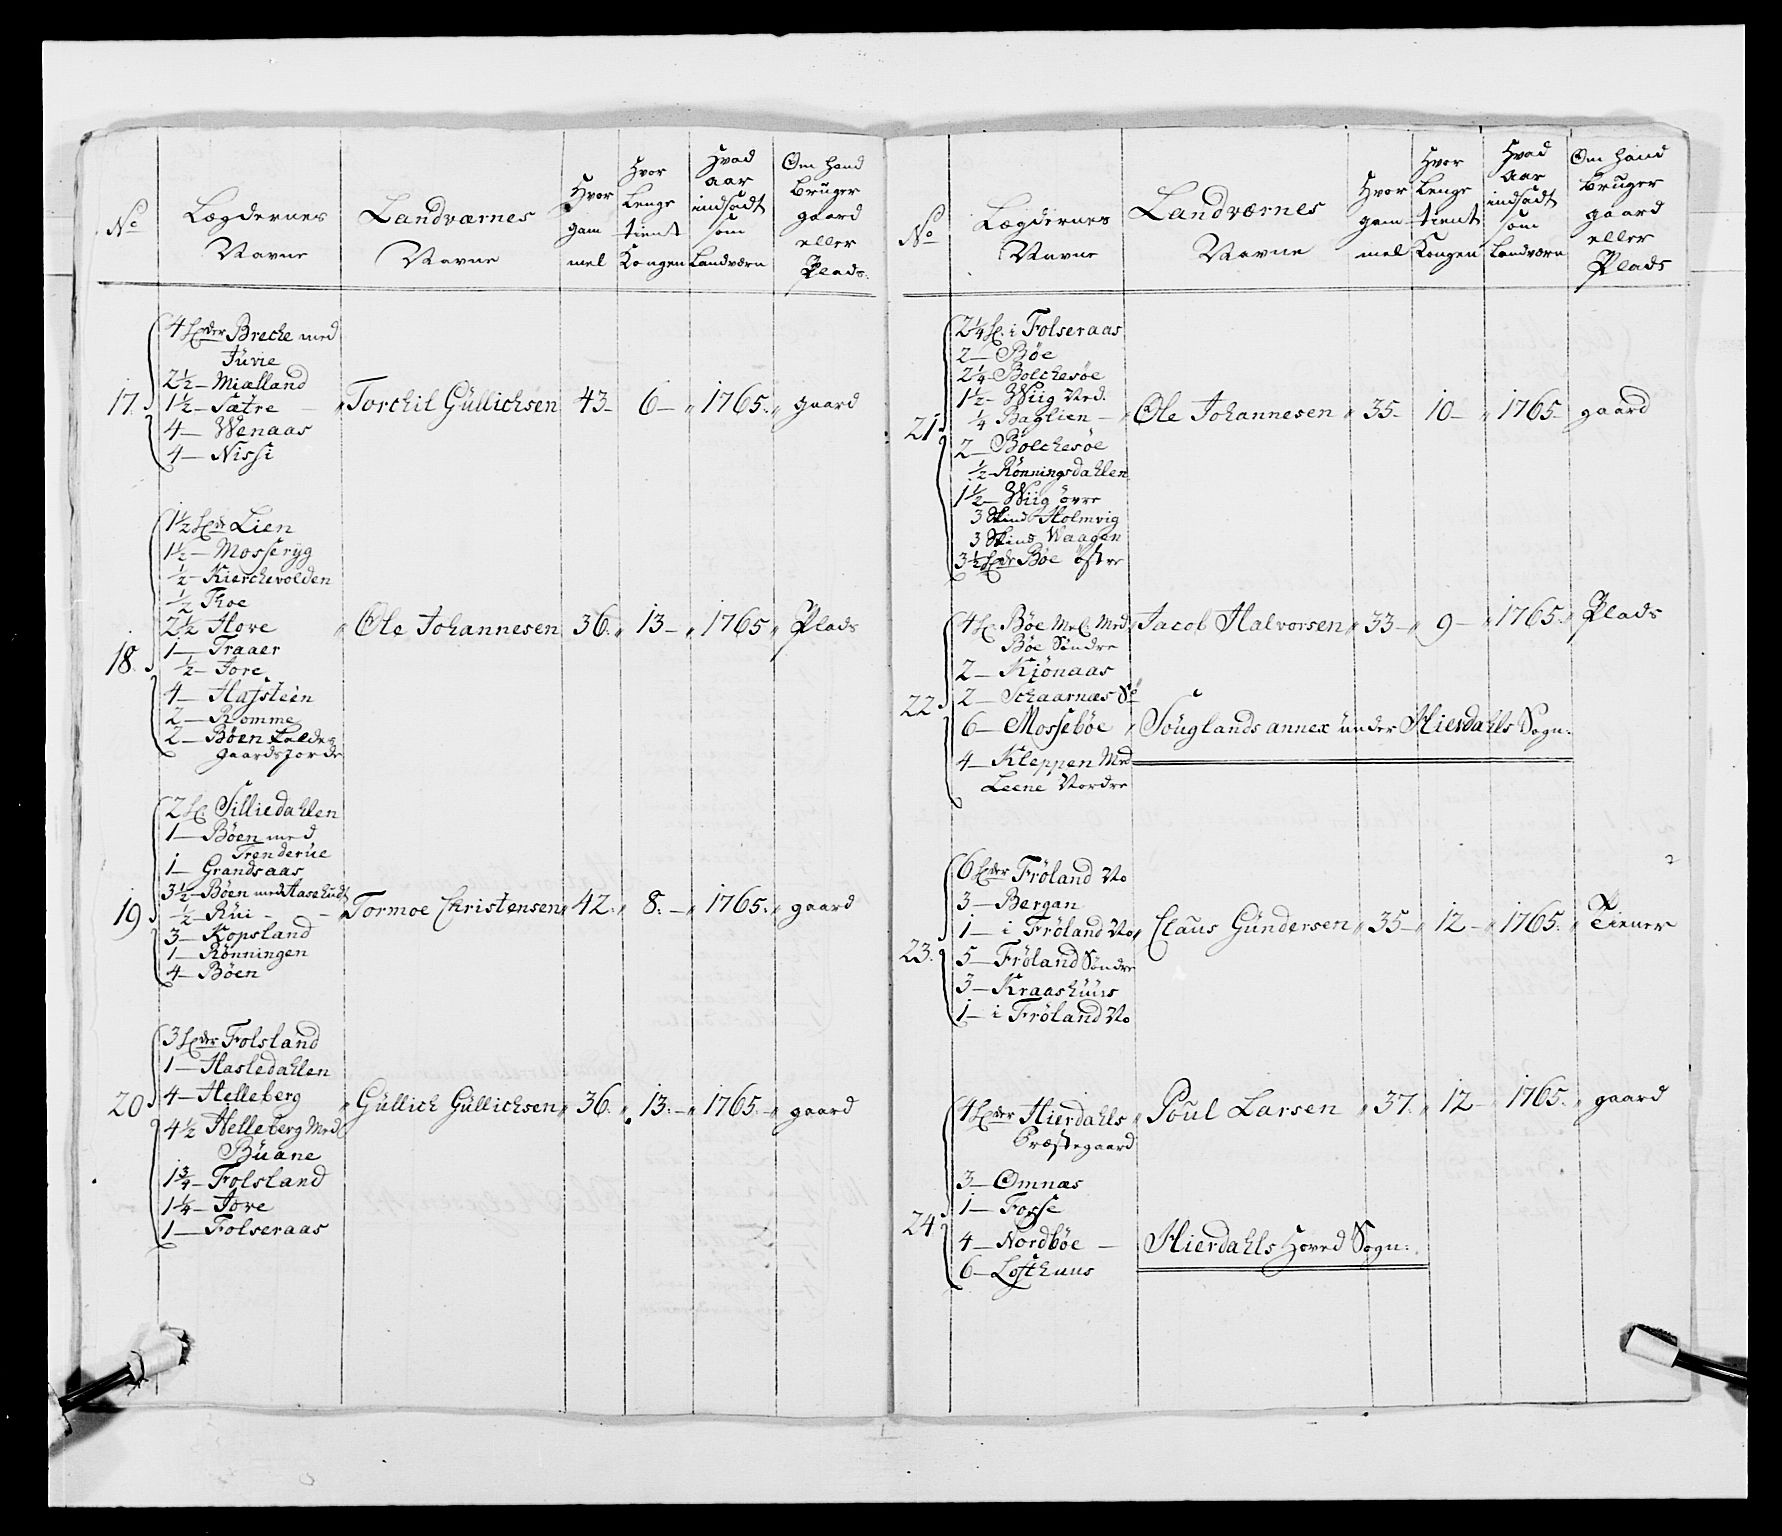 No
Lægdernes
Navne
Landværnes
Navne
Hvor
gam
mel
Hvor
Lenge
tient
Kongen
Hvad
aar
indsadt
som
Landværn
Om hand
bruger
gaard
eller
Plads
17.
4 Breche med
Juvie
2½ — Mielland
1½ — Sætre
4 — Wenaas
4 — Nissi
Torchil Güllichsen 43 — 6 — 1765. gaard
18.
1½ Lien
1½ — Mosseryg
½ — Kierchevolden
½ Thoe
2½ Hove
1 — Traaer
½ — Jore
4 — Hafsteen
2 — Romme
2 — Böen
gaardsjorde
Ole Johannesen 36. 13 — 1765 Plads
19
2 Silliedahlen
1 — Böen med
Trenderue
1 — Grandsaas
3½ — Böen med Aasehudt
½ — Rüi
3 — Kopsland
1 — Rönningen
4 — Böen
Tormoe Christensen 42. 8. — 1765. gaard
20
3 Folsland
1 — Hasledahlen
4 — Helleberg
4½ Helleberg Med
Büane
1¾ — Folsland
1¼ — Jore
1 — Folseraas
Güllich Güllichsen 36. 13. — 1765. gaard
No
Lægdernes
Navne
Landværnes
Navne
Hvor
gam
mel
Hvor
Lenge
tient
Kongen
Hvad
Aar
indsadt
som
Landværn
Om hand
bruger
gaard
eller
Plads
21
2¼ i Folseraas
2 — Böe
2¼ Bolchesöe
1½ — Wiig Ned.
¼ Baglien —
2 — Bölchesöe
½ — Rönningsdahlen
1½ — Wiig övre
3 Skind Holmvig
3 Skind Waagen
3½ Böe östre
Ole Johannesen 35 — 10 — 1765 — gaard
22
4 Böe Mel. Med
Böe Söndre
2 — Kiönaas
2 — Schaarnæs
6 — Mosseböe
4 — Kleppen Med
Leene Nordre
Jacob Halvorsen 33 — 9 — 1765. Plads
Söuglands annex under Hierdahls Sogn.
23.
6 Fröland No
3 — Bergan
1 — i Fröland No
5 — Fröland Söndre
3 — Kraashuus
1 — i Fröland No
Claus Gündersen 35 — 12 — 1765. Tiener
24
4 Hierdahls
Præstegaard
3 — Omnæs
1 — Fosse
4 — Nordböe —
6 — Lofthuus
Poul Larsen 37. 12 — 1765. gaard
Hierdahls Hoved Sogn.